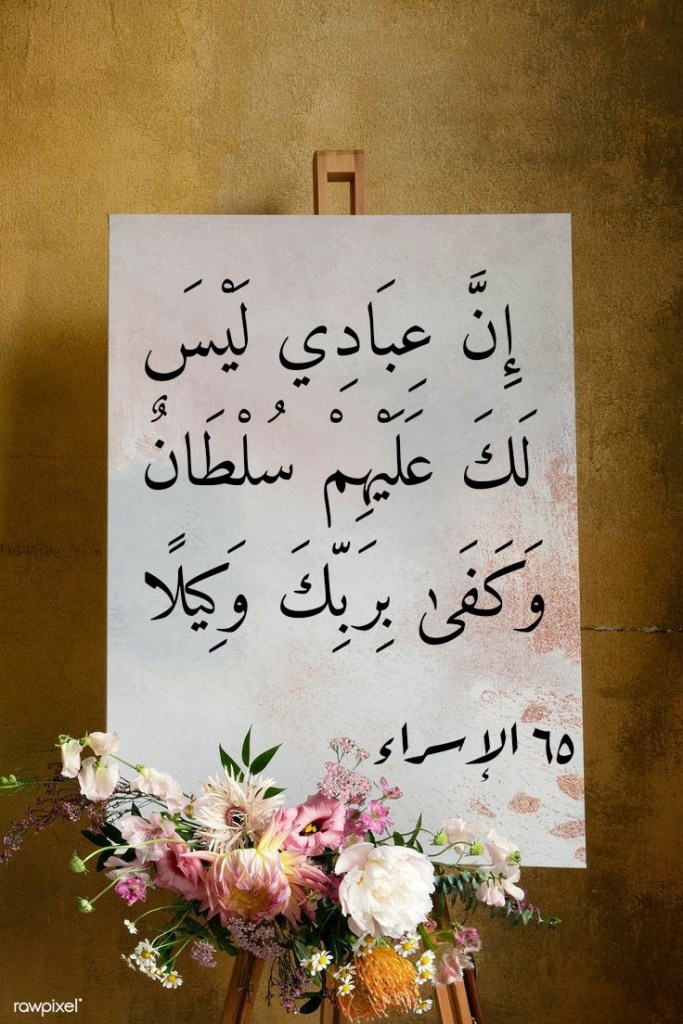 إِنَّ عِبَادِي لَيْسَ
لَكَ عَلَيْهِمْ سُلْطَانٌ
وَكَفَىٰ بِرَبِّكَ وَكِيلًا
٦٥ الإسراء
rawpixel